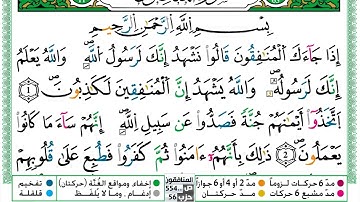 بِسْمِ ٱللَّهِ ٱلرَّحْمَـٰنِ ٱلرَّحِيمِ
إِذَا جَآءَكَ ٱلْمُنَـٰفِقُونَ قَالُوا۟ نَشْهَدُ إِنَّكَ لَرَسُولُ ٱللَّهِ ۗ وَٱللَّهُ يَعْلَمُ
إِنَّكَ لَرَسُولُهُۥ وَٱللَّهُ يَشْهَدُ إِنَّ ٱلْمُنَـٰفِقِينَ لَكَـٰذِبُونَ 1
ٱتَّخَذُوٓا۟ أَيْمَـٰنَهُمْ جُنَّةً فَصَدُّوا۟ عَن سَبِيلِ ٱللَّهِ ۚ إِنَّهُمْ سَآءَ مَا كَانُوا۟
يَعْمَلُونَ 2 ذَٰلِكَ بِأَنَّهُمْ ءَامَنُوا۟ ثُمَّ كَفَرُوا۟ فَطُبِعَ عَلَىٰ قُلُوبِهِمْ
مدّ 6 حركات لزوماً مدّ 2 أو 4 أو 6 جوازاً المنافقون ص 554 إخفاء، ومواقع الغُنَّة (حركتان) تفخيم
مدّ مشبع 6 حركات مدّ حركتان حزب 56 إدغام، وما لا يُلفَظ قلقلة